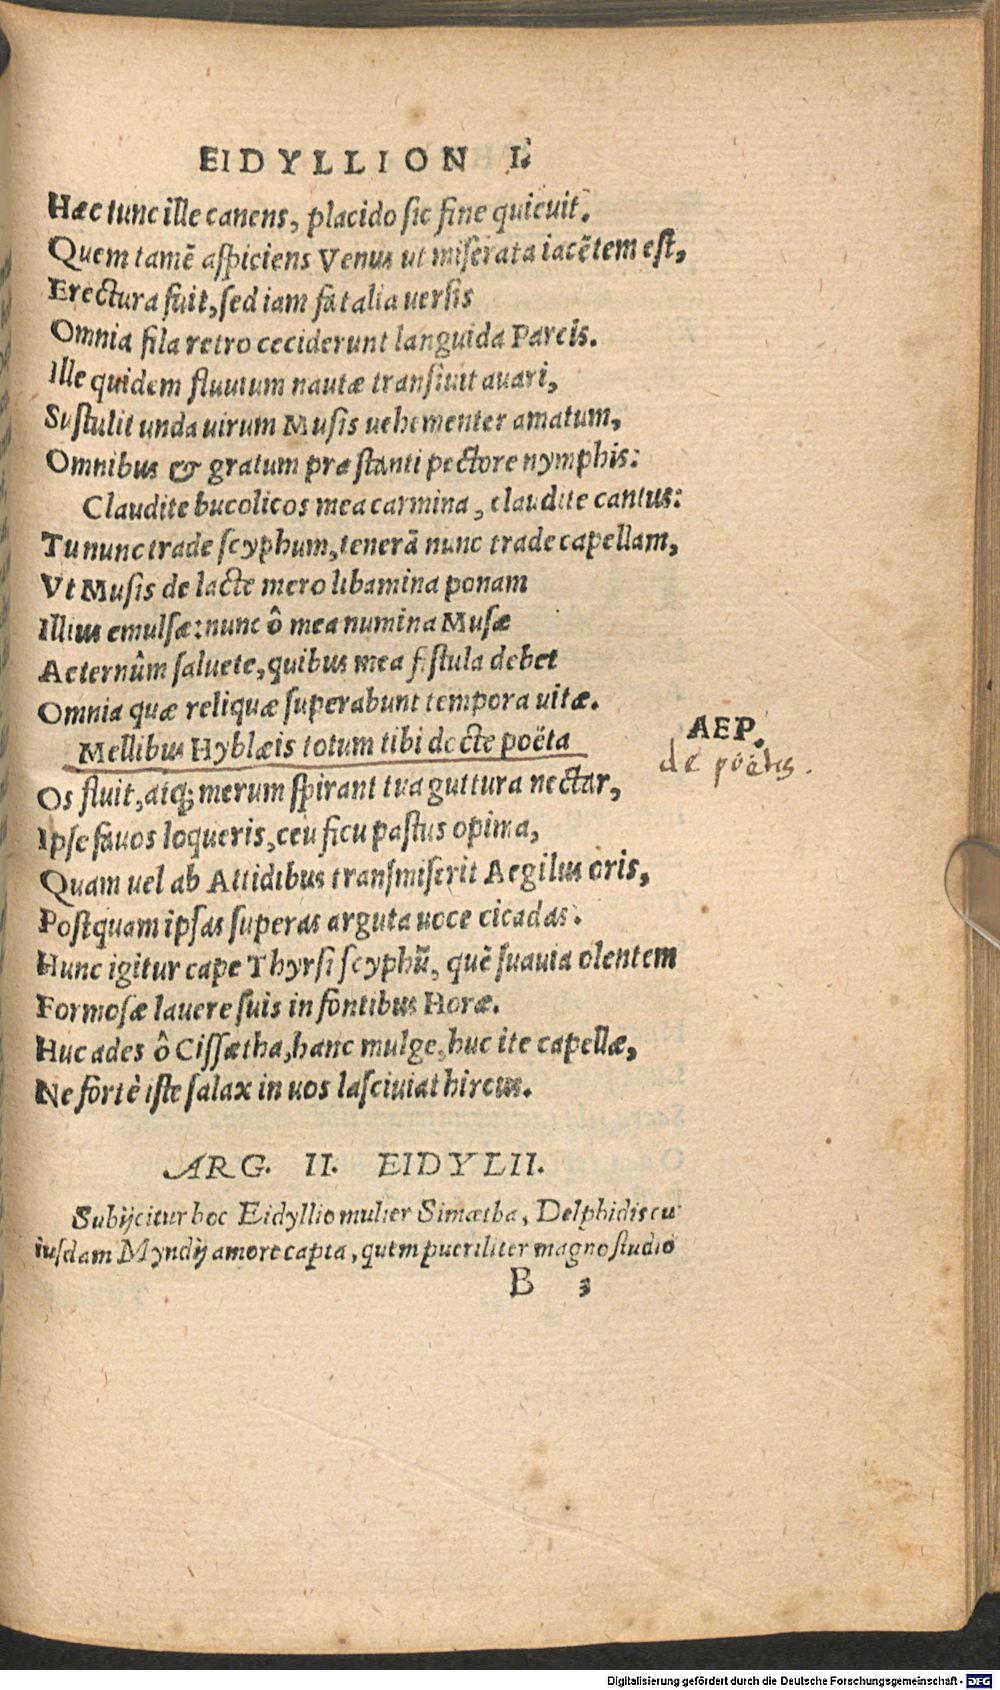 EIDYLLION I.
Haec tunc ille canens, placido sic fine quieuit.
Quem tamē aspiciens Venus ut miserata iacētem est,
Erectura fuit, sed iam fatalia uersis
Omnia fila retro ceciderunt languida Parcis.
Ille quidem fluuium nautæ transiuit auari,
Sustulit unda uirum Musis uehementer amatum,
Omnibus & gratum præstanti pectore nymphis:
Claudite bucolicos mea carmina, claudite cantus:
Tu nunc trade scyphum, tenerā nunc trade capellam,
Vt Musis de lacte mero libamina ponam
Illius emulsæ: nunc ô mea numina Musæ
Aeternûm saluete, quibus mea fistula debet
Omnia quæ reliquæ superabunt tempora uitæ.
Mellibus Hyblæis totum tibi docte poëta
AEP.
de poëtis.
Os fluit, atq; merum spirant tua guttura nectar,
Ipse fauos loqueris, ceu ficu pastus opima,
Quam uel ab Attidibus transmiserit Aegilus oris,
Postquam ipsas superas arguta uoce cicadas.
Hunc igitur cape Thyrsi scyphū, quē suauia olentem
Formosæ lauere suis in fontibus Horæ.
Huc ades ô Cissætha, hanc mulge, huc ite capellæ,
Ne fortè iste salax in uos lasciuiat hircus.
ARG. II. EIDYLII.
Subijcitur hoc Eidyllio mulier Simætha, Delphidis cu
iusdam Myndij amore capta, quem pueriliter magno studio
B 3
Digitalisierung gefördert durch die Deutsche Forschungsgemeinschaft - DFG